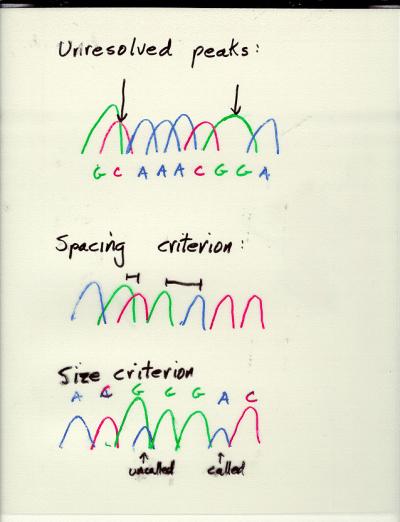 Unresolved peaks:
G C A A A C G G A
Spacing criterion:
Size criterion
A C G G G A C
uncalled called